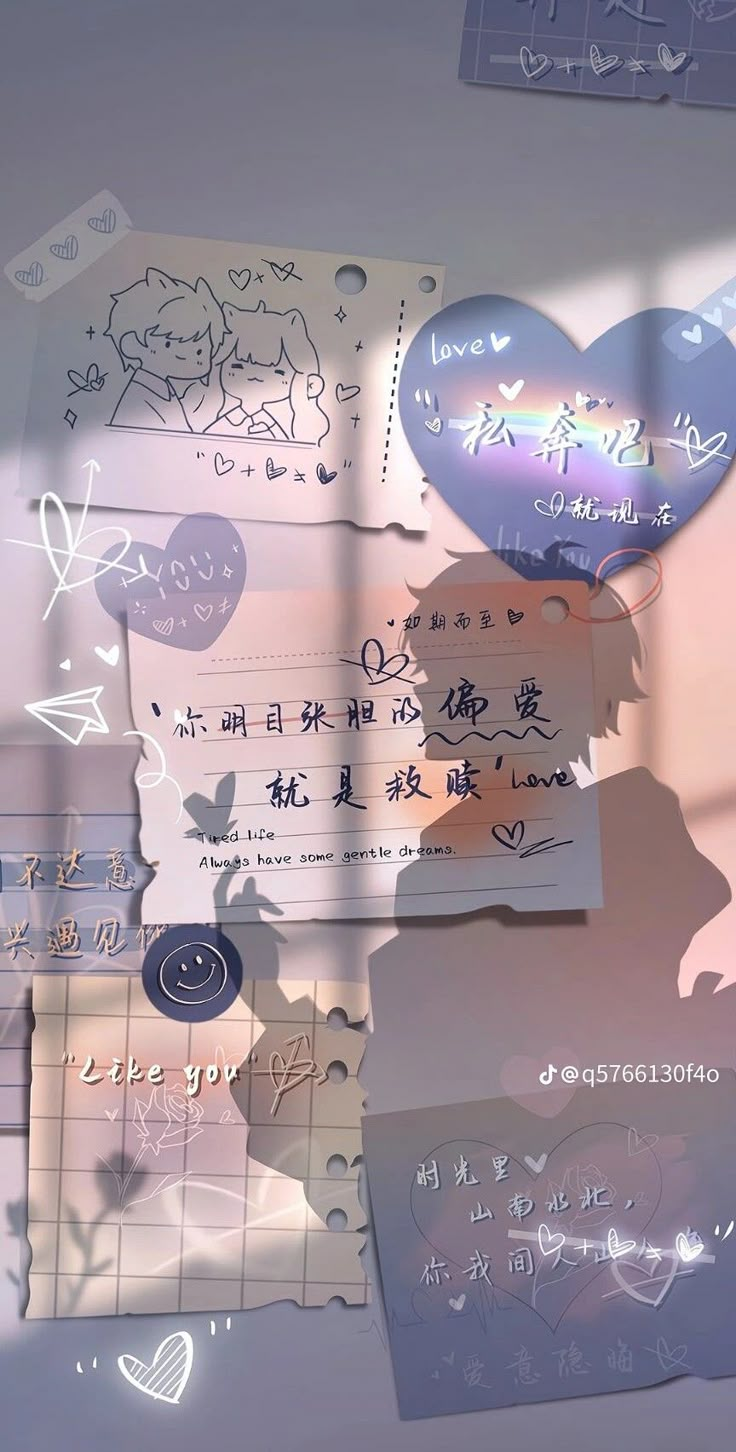 love
"私奔吧"
就现在
like you
如期而至
'你明目张胆的偏爱
就是救赎'
Love
Tired life
Always have some gentle dreams.
不达意
兴遇见你
"Like you"
@q5766130f4o
时光里
山南水北，
你我间人山人海
爱意隐晦